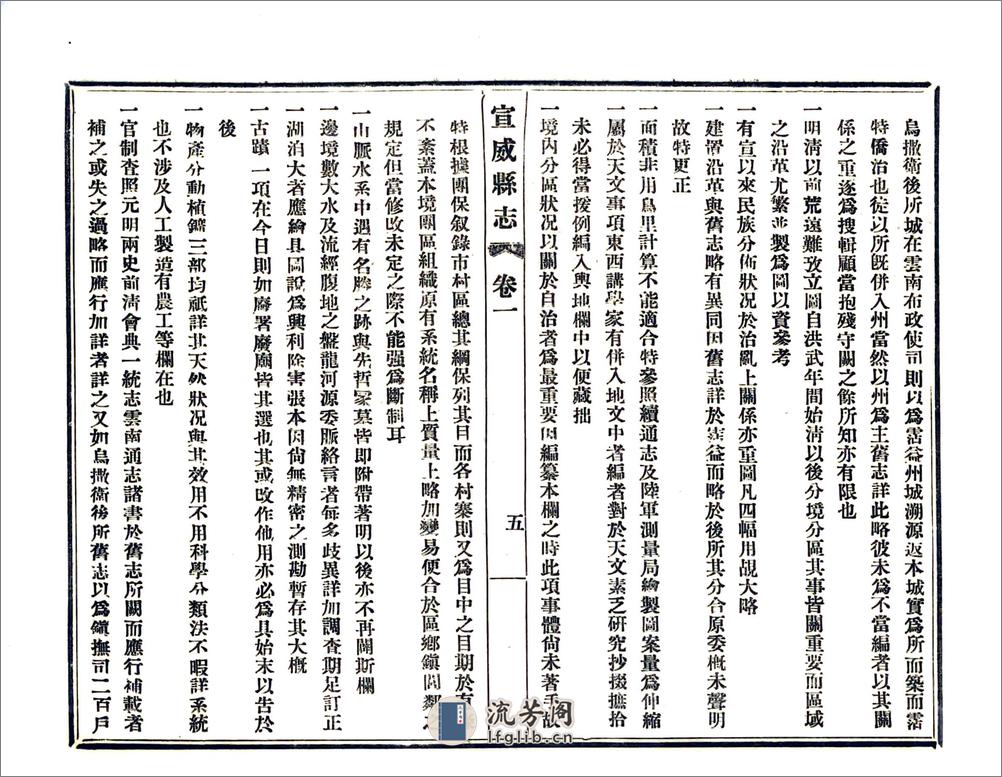 烏撒衛後所城在雲南布政使司則以爲霑益州城溯源返本城實爲所而築而霑
特僑治也徒以所既併入州當然以州爲主舊志詳此略彼未爲不當編者以其關
係之重逐爲搜輯顧當抱殘守闕之餘所知亦有限也
一明清以前荒遠難攷立圖自洪武年間始清以後分境分區其事皆關重要而區域
之沿革尤繁並製爲圖以資參考
一有宣以來民族分佈狀況於治亂上關係亦重圖凡四幅用覘大略
一建置沿革與舊志略有異同因舊志詳於霑益而略於後所其分合原委槪未聲明
故特更正
一面積非用鳥里計算不能適合特參照續通志及陸軍測量局繪製圖案量爲伸縮
一屬於天文事項東西講學家有併入地文中者編者對於天文素乏研究抄掇摭拾
未必得當援例編入輿地欄中以便藏拙
一境內分區狀況以關於自治者爲最重要因編纂本欄之時此項事體尚未著手故
宣威縣志 卷一 五
特根據團保叙錄市村區總其綱保列其目而各村寨則又爲目中之目期於有
不紊蓋本境團區組織原有系統名稱上質量上略加變易便合於區鄉鎭閭鄰之
規定但當修改未定之際不能强爲斷制耳
一山脈水系中遇有名勝之跡與先哲冢墓皆即附帶著明以後亦不再闢斯欄
一邊境數大水及流經腹地之盤龍河源委脈絡言者每多歧異詳加調查期足訂正
一湖泊大者應繪具圖說爲興利除害張本因尙無精密之測勘暫存其大槪
一古蹟一項在今日則如廢署廢廟皆其選也其或改作他用亦必爲具始末以告於
後
一物產分動植鑛三部均祇詳其天然狀況與其效用不用科學分類法不暇詳系統
也不涉及人工製造有農工等欄在也
一官制查照元明兩史前淸會典一統志雲南通志諸書於舊志所闕而應行補載者
補之或失之過略而應行加詳者詳之又如烏撒衛後所舊志以爲鎭撫司二百戶
流芳阁
lfglib.cn